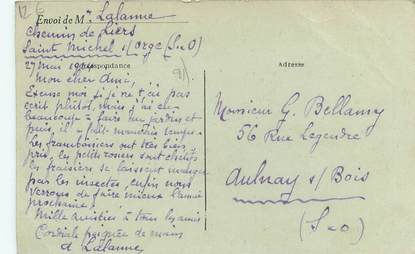 Envoi de M Lalanne
Chemin de Liers
Saint Michel s/Orge (S&O)
Correspondance
27 Mai
Mon cher Ami,
Excuse moi si je ne t'ai pas
écrit plutôt, mais j'ai eu
beaucoup à faire au jardin et
puis, il a fait mauvais temps.
Les framboisiers ont très bien
pris, les petits rosiers sont chétifs
les fraisiers se laissent manger
par les insectes, enfin nous
verrons de faire mieux l'année
prochaine.
Mille amitiés à tous les amis
Cordiale poignée de mains
Lalanne
Adresse
Monsieur G. Bellamy
56 Rue Legendre
Aulnay s/Bois
(S&O)